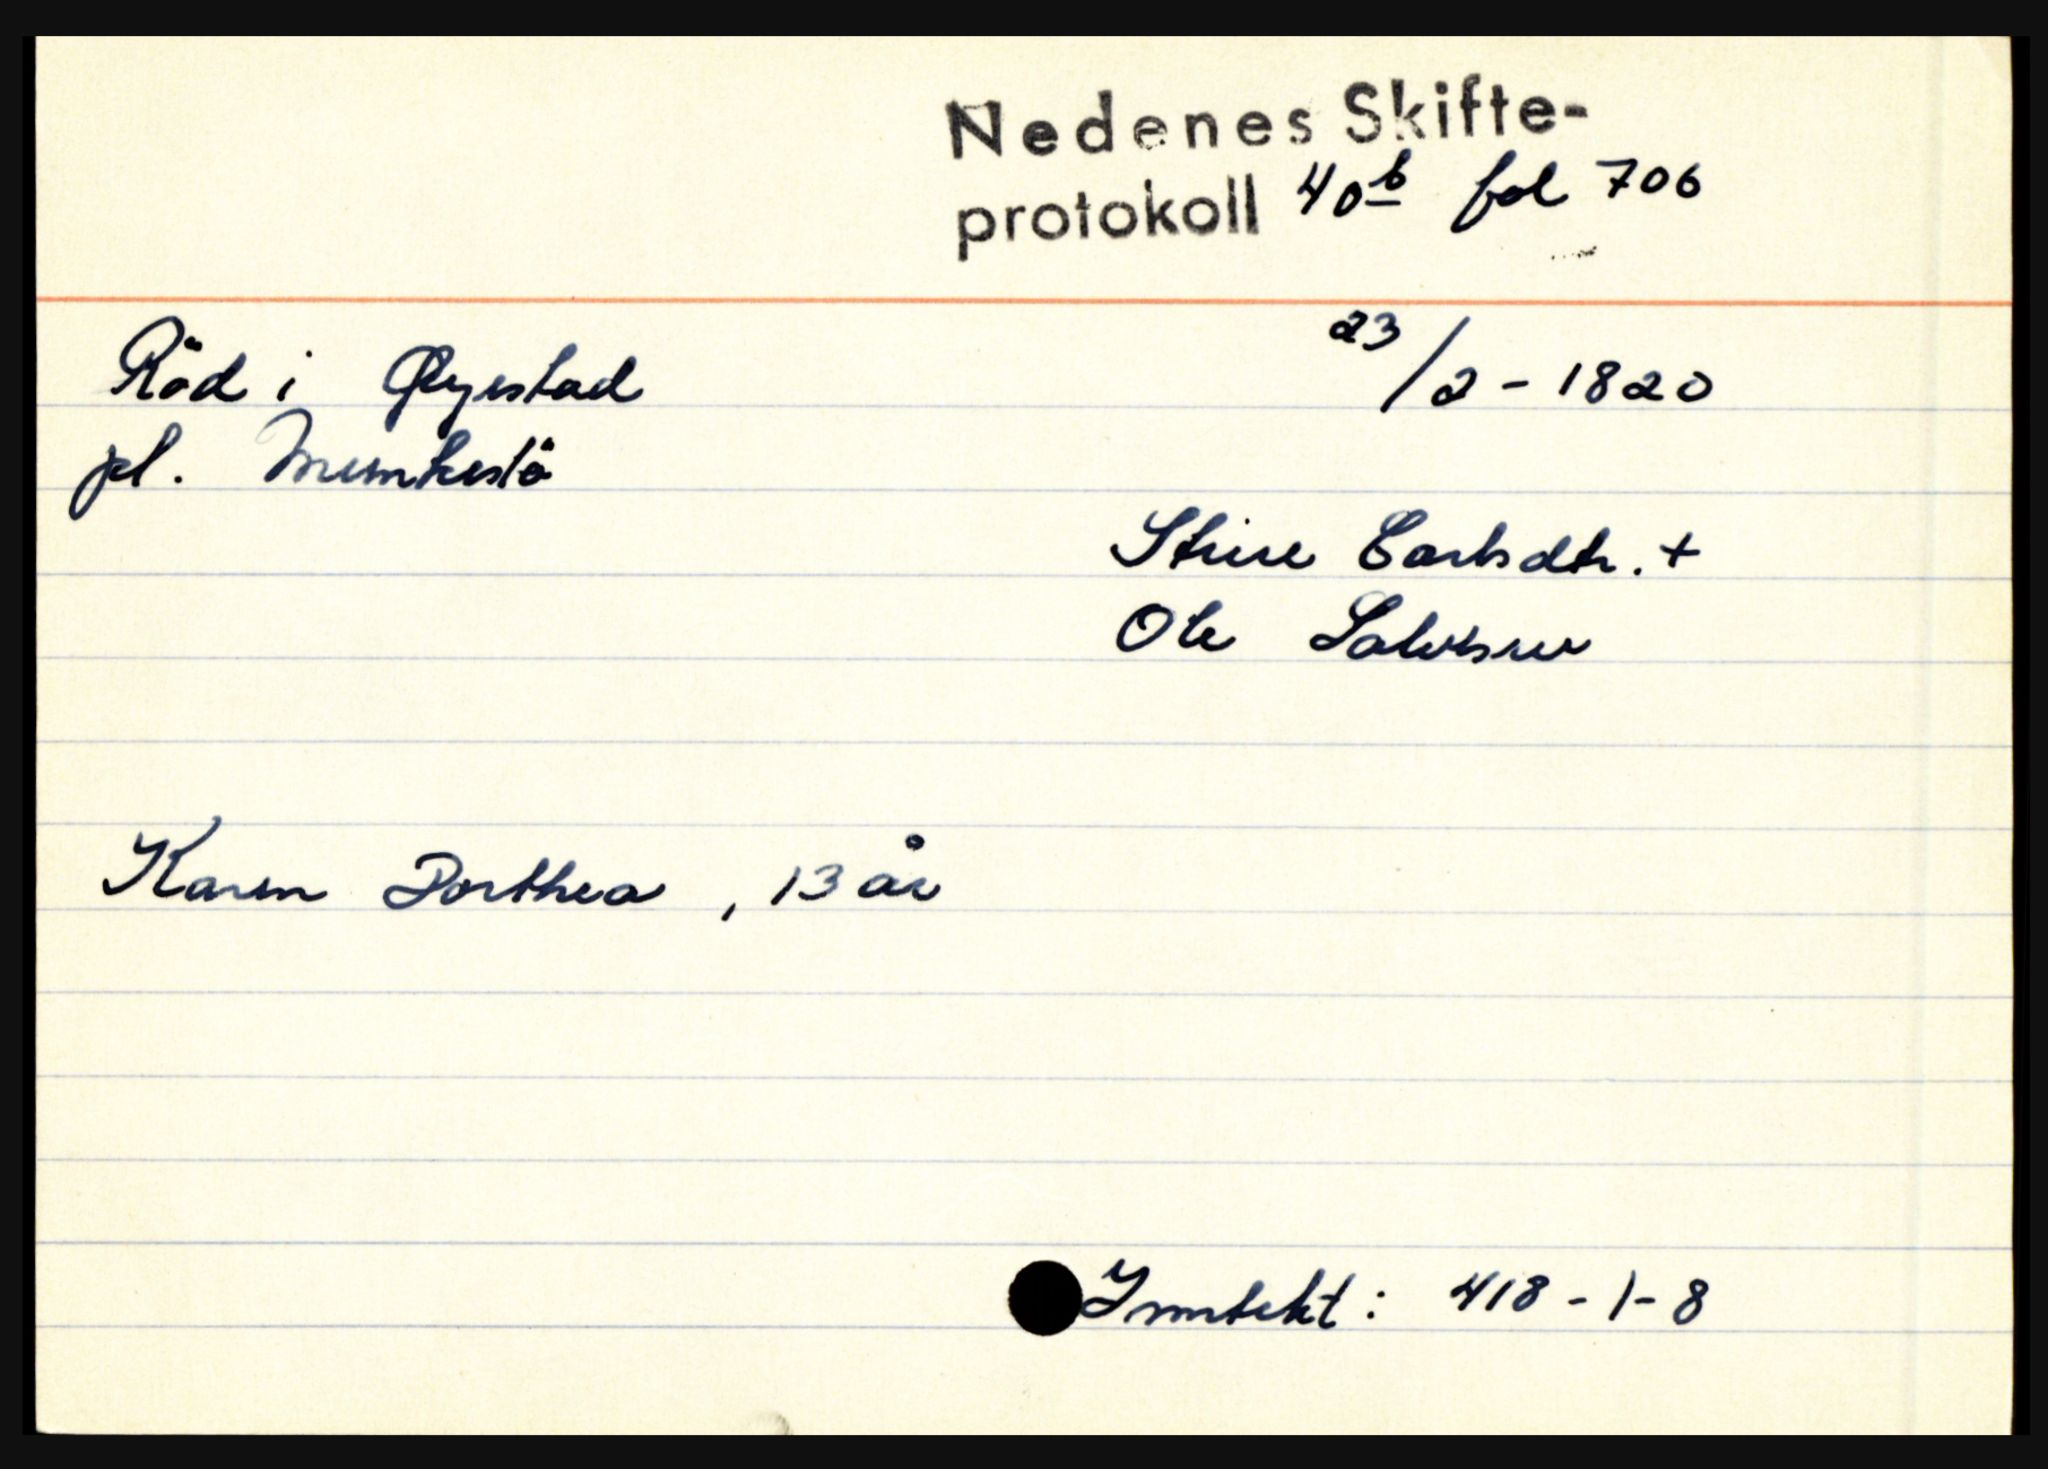 Nedenes Skifte-
protokoll 40b fol 706
Röd i Øyestad 23/2-1820
pl. Munkestö
Stine Carlsdtr. +
Ole Salvesen
Karen Dorthea, 13 år
Inntekt: 418-1-8